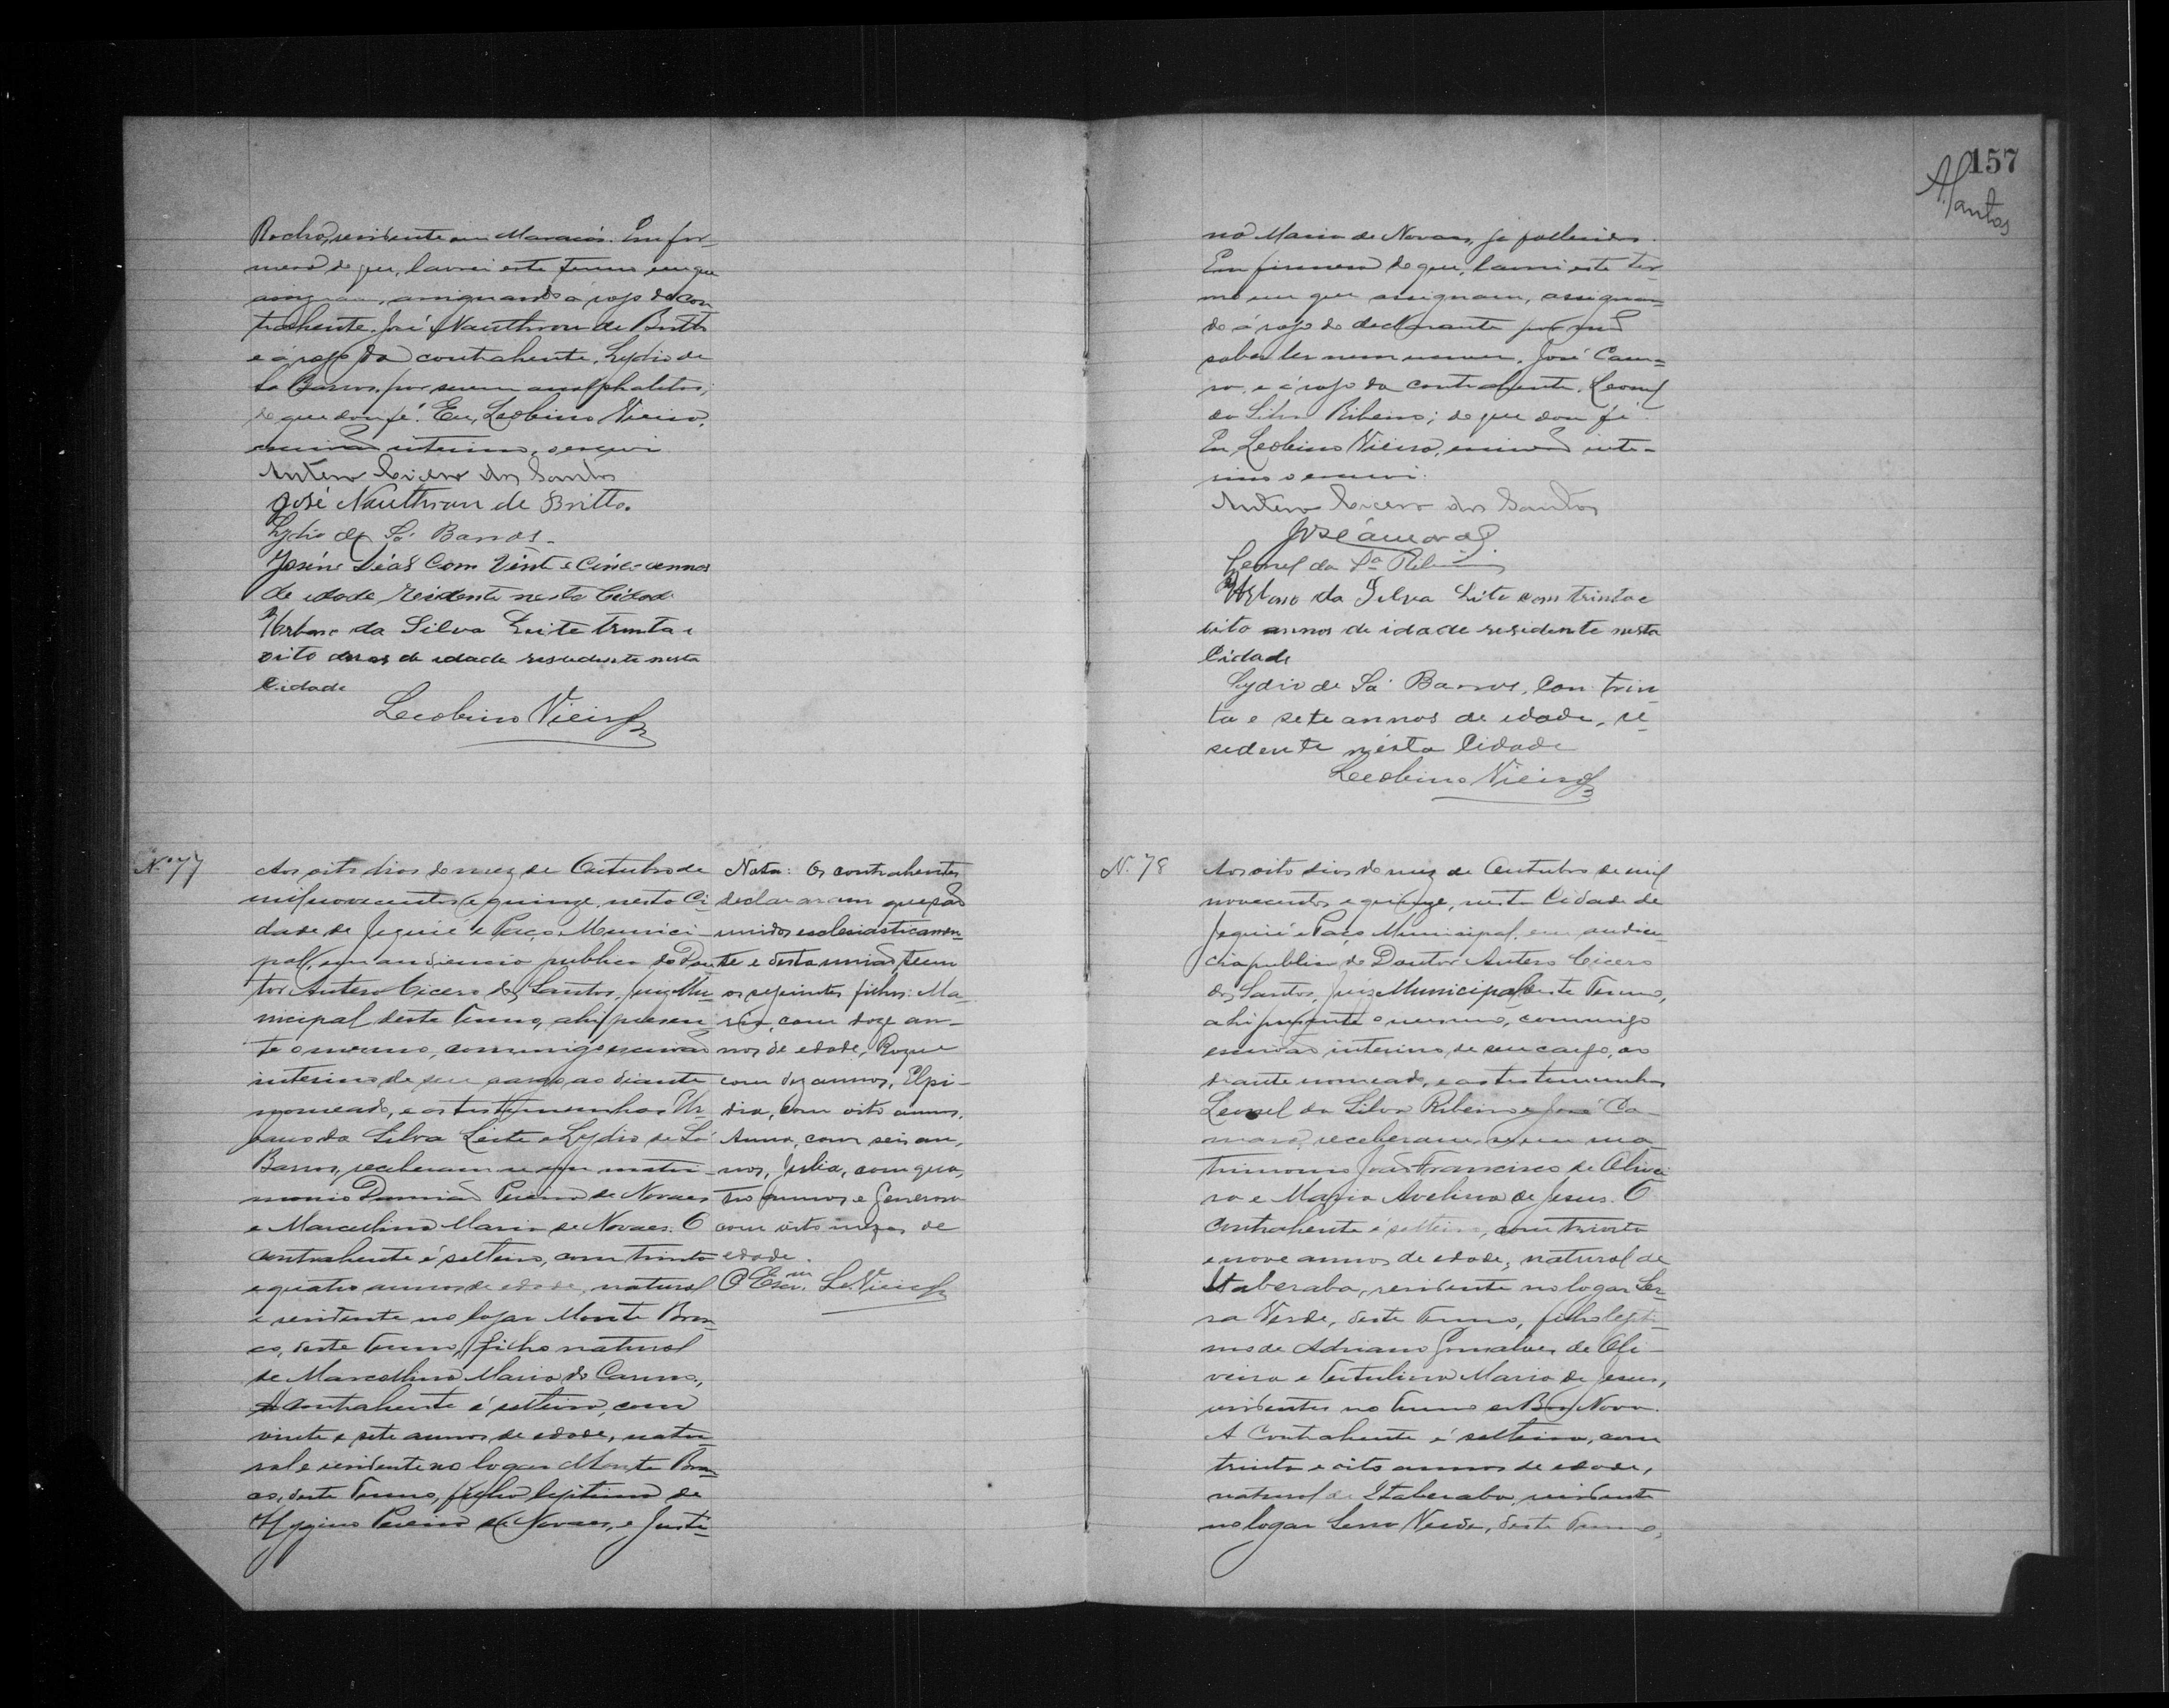 Rocha, residente em Maracás. Em fir-
mesa de que, lavrei este termo em que
assignam, assignando á rogo do con-
trahente, José Nauthron de Britto
e á rogo da contrahente, Lydio de
Sá Barros, por serem analphabetos;
do que dou fé. Eu, Leobino Vieira,
escrivão interino, o escrevi
Antero Cicero dos Santos
José Nauthron de Britto.
Lydio de Sá Barros.
Dias com vint e cinc annos
de edade residente nesta Cidad
Urbano da Silva Leite trinta e
oito annos de edade residente nesta
Cidade
Leobino Vieira
Nº 77
Aos oito dias do mez de Outubro de
mil novecentos e quinze, nesta Ci-
dade de Jequié e Paço Munici-
pal, em audiencia publica do Dou-
tor Antero Cicero dos Santos, Juiz Mu-
nicipal deste Termo, ahi presen-
te o mesmo, commigo escrivão
interino de seu cargo ao diante
nomeado, e as testemunhas Ur-
bano da Silva Leite e Lydio de Sá
Barros, receberam-se em matri-
monio Damião Pereira de Novaes
e Marcellina Maria de Novaes. O
contrahente é solteiro, com trinta
e quatro annos de edade, natural
e residente no logar Monte Bran-
co, deste Termo, filho natural
de Marcellina Maria do Carmo,
A contrahente é solteira, com
vinte e sete annos de edade, natu-
ral e residente no logar Monte Bran-
co, deste Termo, filha legitima de
Hygino Pereira de Novaes, e Justi-
Nota: Os contrahentes
declararam que são
unidos ecclesiasticamen-
te e desta união, teem
os seguintes filhos: Ma-
ria, com doze an-
nos de edade, Roque
com dez annos, Elpi-
dia, com oito annos,
Anna, com seis an-
nos, Julia, com qua-
tro annos e Generosa
com oito mezes de
edade.
O Escr.am L. Vieira
157
ASantos
na Maria de Novaes, ja fallecidos.
Em firmesa do que, lavrei este ter-
mo em que assignam, assignan-
do á rogo do declarante por não
saber ler nem escrever, José Cama-
ra, e á rogo da contrahente, Leonel
da Silva Ribeiro; do que dou fé.
Eu, Leobino Vieira, escrivão inte-
rino o escrevi.
Antero Cicero dos Santos
José Camara
Leonel da Sª Ribeiro
Urbano da Silva Leite com trinta e
oito annos de idade residente nesta
Cidade
Lydio de Sá Barros, con trin-
ta e sete annos de edade, re-
sedente nésta Cidade
Leobino Vieira
N. 78
Aos oito dias do mez de Outubro de mil
novecentos e quinze, nesta Cidade de
Jequié e Paço Municipal, em audien-
cia publica do Doutor Antero Cicero
dos Santos, Juiz Municipal deste Termo,
ahi presente o mesmo, commigo
escrivão interino de seu cargo, ao
diante nomeado, e as testemunhas
Leonel da Silva Ribeiro e José Ca-
mara, receberam-se em ma-
trimonio João Francisco de Olivei-
ra e Maria Avelina de Jesus. O
contrahente é solteiro, com trinta
e nove annos de edade, natural de
Itaberaba, residente no logar Ser-
ra Verde, deste Termo, filho legiti-
mo de Adriano Gonsalves de Oli-
veira e Tertulina Maria de Jesus,
residentes no Termo de Bôa Nova.
A contrahente é solteira, com
trinta e oito annos de edade,
natural de Itaberaba, residente
no logar Serra Verde, deste Termo,